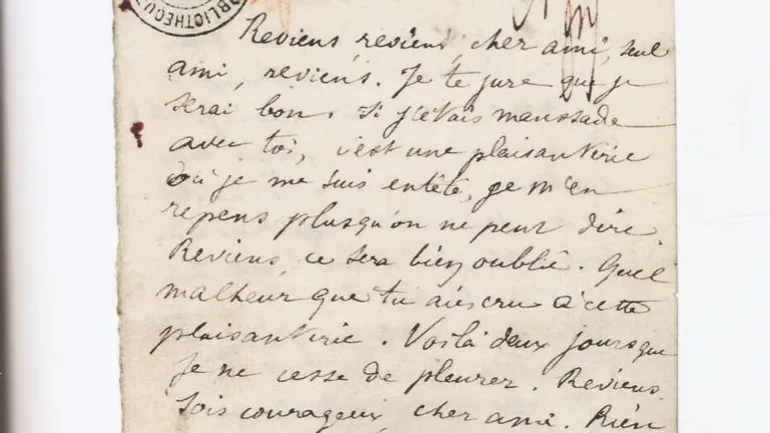 BIBLIOTHEQUE
Reviens, reviens, cher ami, seul
ami, reviens. Je te jure que je
serai bon. Si j'étais maussade
avec toi, c'est une plaisanterie
où je me suis entêté, je m'en
repens plus qu'on ne peut dire.
Reviens, ce sera bien oublié. Quel
malheur que tu aies cru à cette
plaisanterie. Voilà deux jours que
je ne cesse de pleurer. Reviens.
Sois courageux, cher ami. Rien